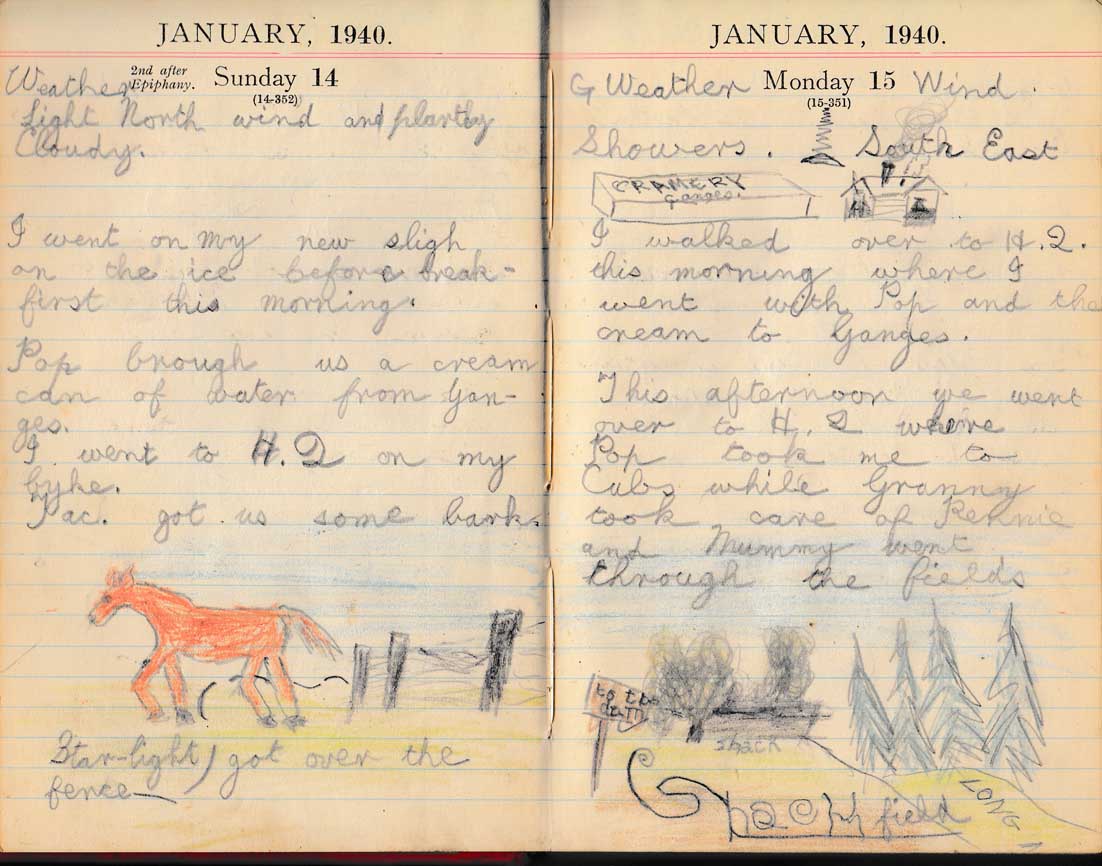 JANUARY, 1940.
2nd after
Epiphany.
Weather Sunday 14
(14-352)
Light North wind and plartly
Cloudy.
I went on my new sligh
on the ice before break-
first this morning.
Pop brough us a cream
can of water from Gan-
ges.
I went to H.Q on my
byke.
Pac. got us some bark.
Star-light got over the
fence
JANUARY, 1940.
G Weather Monday 15 Wind.
(15-351)
Showers. South East
CRAMERY
Ganges.
I walked over to H.Q.
this morning where I
went with Pop and the
cream to Ganges.
This afternoon we went
over to H.Q where
Pop took me to
Cubs while Granny
took care of Rennie
and Mummy went
through the fields
to the
shack
LONG
Shack field